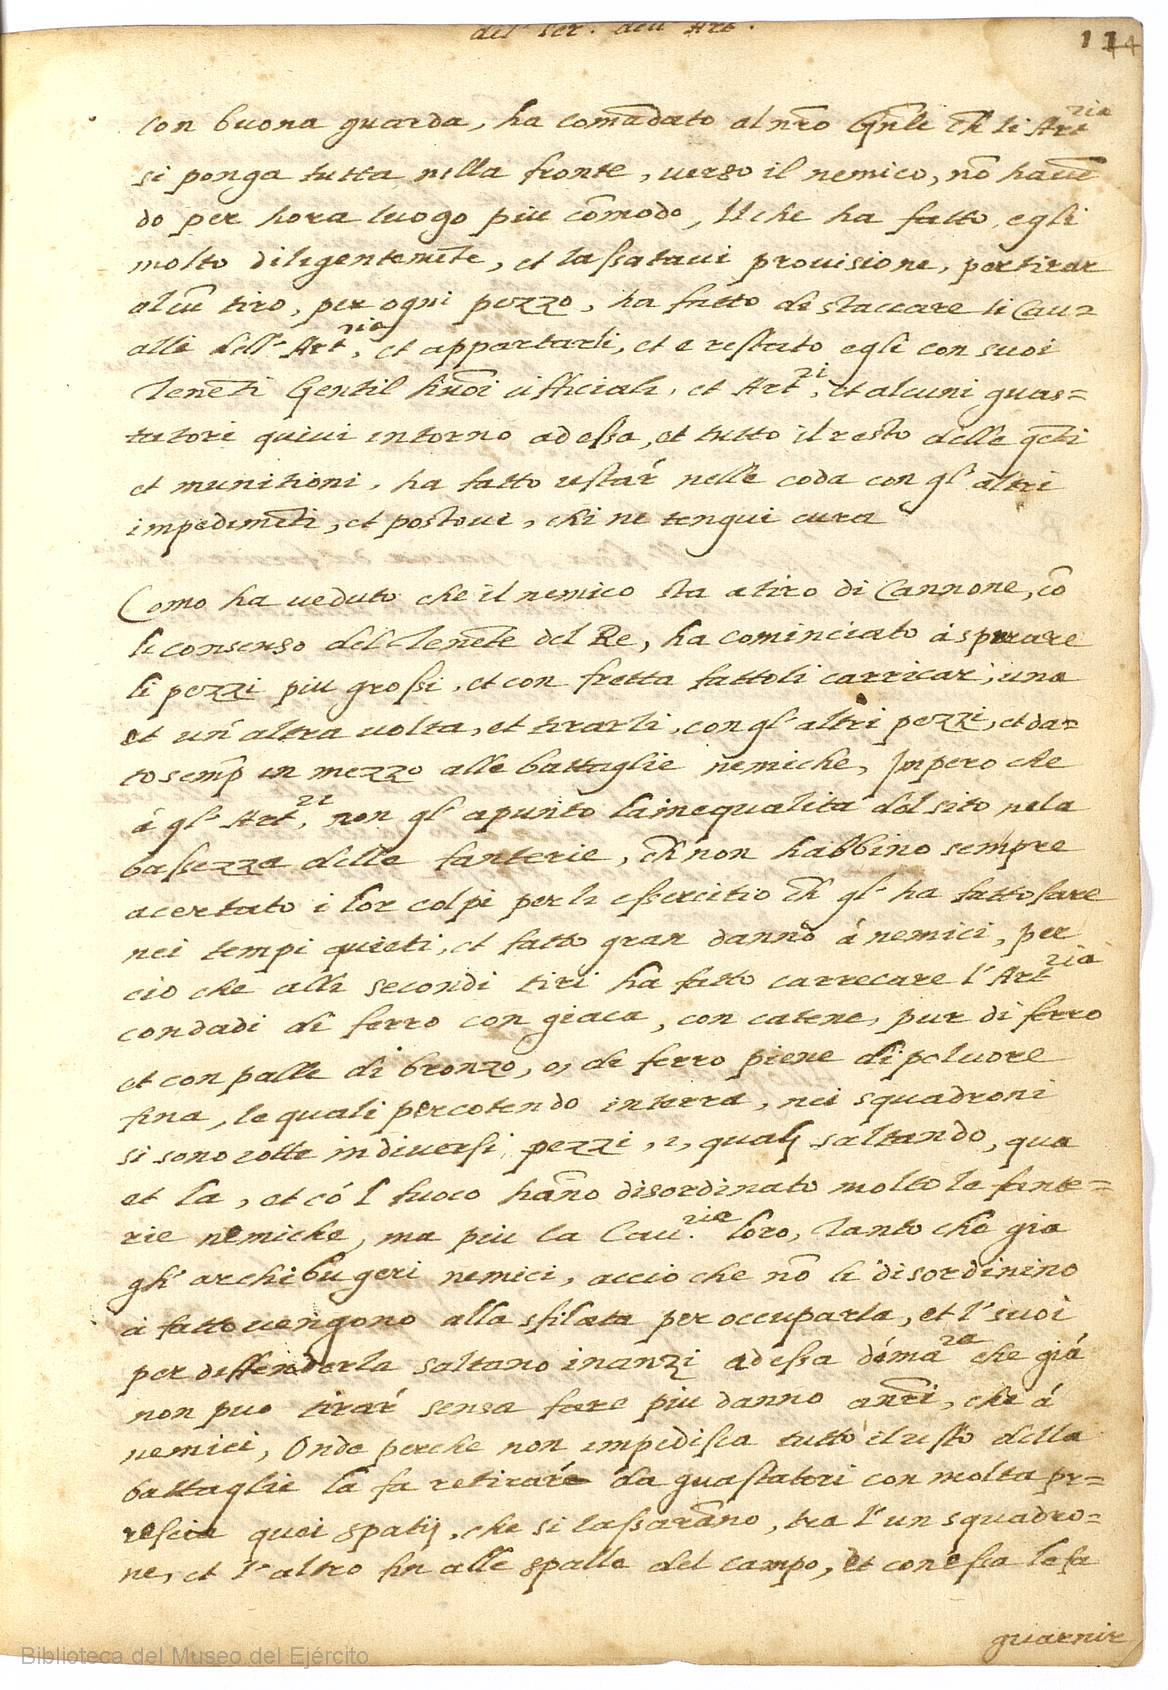 del Ser. dell' Art.
11 44
Con buona guarda, ha comãdato al nr̃o Gñle ch̃ li Artria
si ponga tutta nella fronte, uerso il nemico, nõ hauẽ
do per hora luogo piu cõmodo, Il che ha fatto egli
molto diligentemẽte, et lassataui prouisione, per tirar
alcũ tiro, per ogni pezzo, ha fatto de staccare li Cau=
alli dell' Artria, et appartarli, et e restato egli con suoi
Tenẽti Gentil huõi ufficiali, et Artri, et alcuni guas=
tatori quiui intorno ad essa, et tutto il resto delle gẽti
et munitioni, ha fatto restar nelle coda con gl' altri
impedimẽti, et postoui, chi ne tengui cura
Como ha ueduto che il nemico sta a tiro di Cannone, cõ
li consenso del Tenẽte del Re, ha cominciato á sparare
li pezzi piu grossi, et con fretta fattoli carricar, una
et un' altra uolta, et tirarli, con gl' altri pezzi, et da=
to semp̃ in mezzo alle battaglie nemiche, Impero che
á gl' Artri, non gl' apunto la inequalita del sito ne la
bassezza delle fanterie, ch̃ non habbino sempre
acertato i lor colpi per li essercitio ch̃ gl' ha fatto fare
nei tempi quieti, et fatto gran danno á nemici, per
cio che alli secondi tiri ha fatto carrecare l' Artria
con dadi di ferro con giaca, con catene, pur di ferro
et con palle di bronzo, o, de ferro piene di poluore
fina, le quali percotendo in terra, nei squadroni
si sono rotte in diuersi pezzi, i, quali saltando, qua
et la, et có l fuoco hãno disordinato molto le fante=
rie nemiche, ma piu la Cau.ria loro, Tanto che gia
gli archibugeri nemici, accio che nõ li disordinino
á fatto uengono alla sfilata per occuparla, et l' suoi
per deffenderla saltano inanzi ad essa di mára che giá
non puo tirar sensa fare piu danno a nr̃i, che á
nemici, Onde perche non impedisca tutto il resto della
battaglie la fa retirare da guastatori con molta pr=
rescia quei spatij, che si lassarãno, tra l' un squadro=
ne, et l' altro fin alle spalle del campo, et con essa le fa
guarnir
Biblioteca del Museo del Ejército